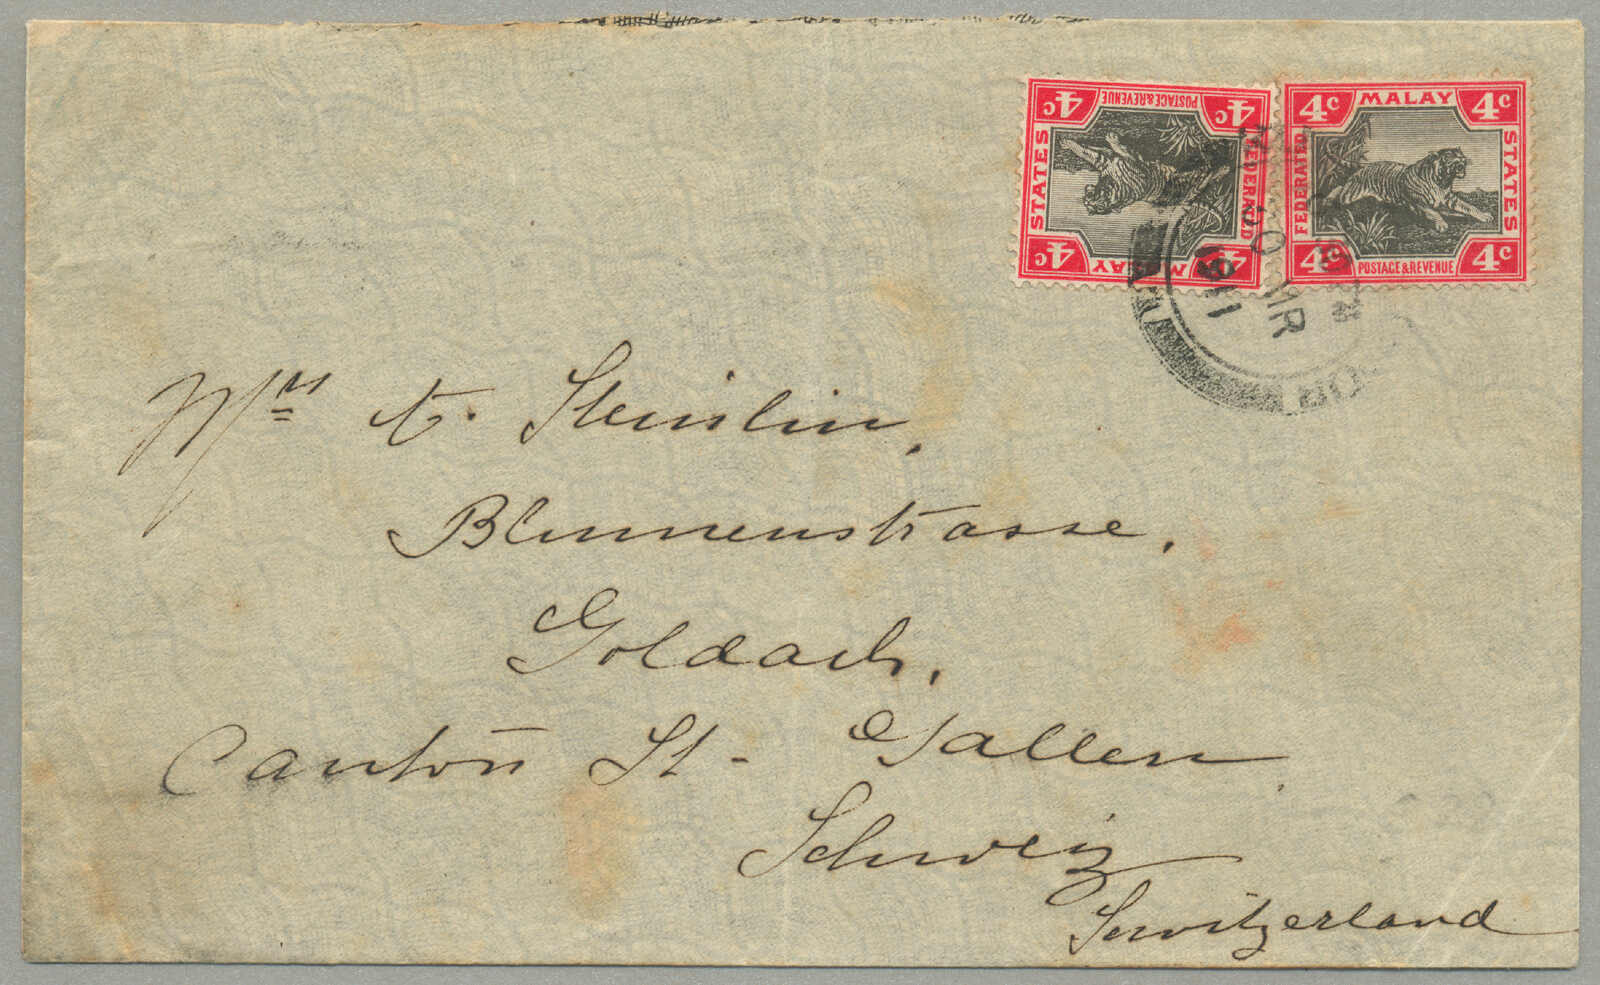 4c MALAY 4c
FEDERATED
STATES
4c POSTAGE & REVENUE 4c
4c MALAY 4c
FEDERATED
STATES
4c POSTAGE & REVENUE 4c
MR
1911
Mrs A. Steinlin,
Blumenstrasse,
Goldach,
Canton St. Gallen
Schweiz
Switzerland